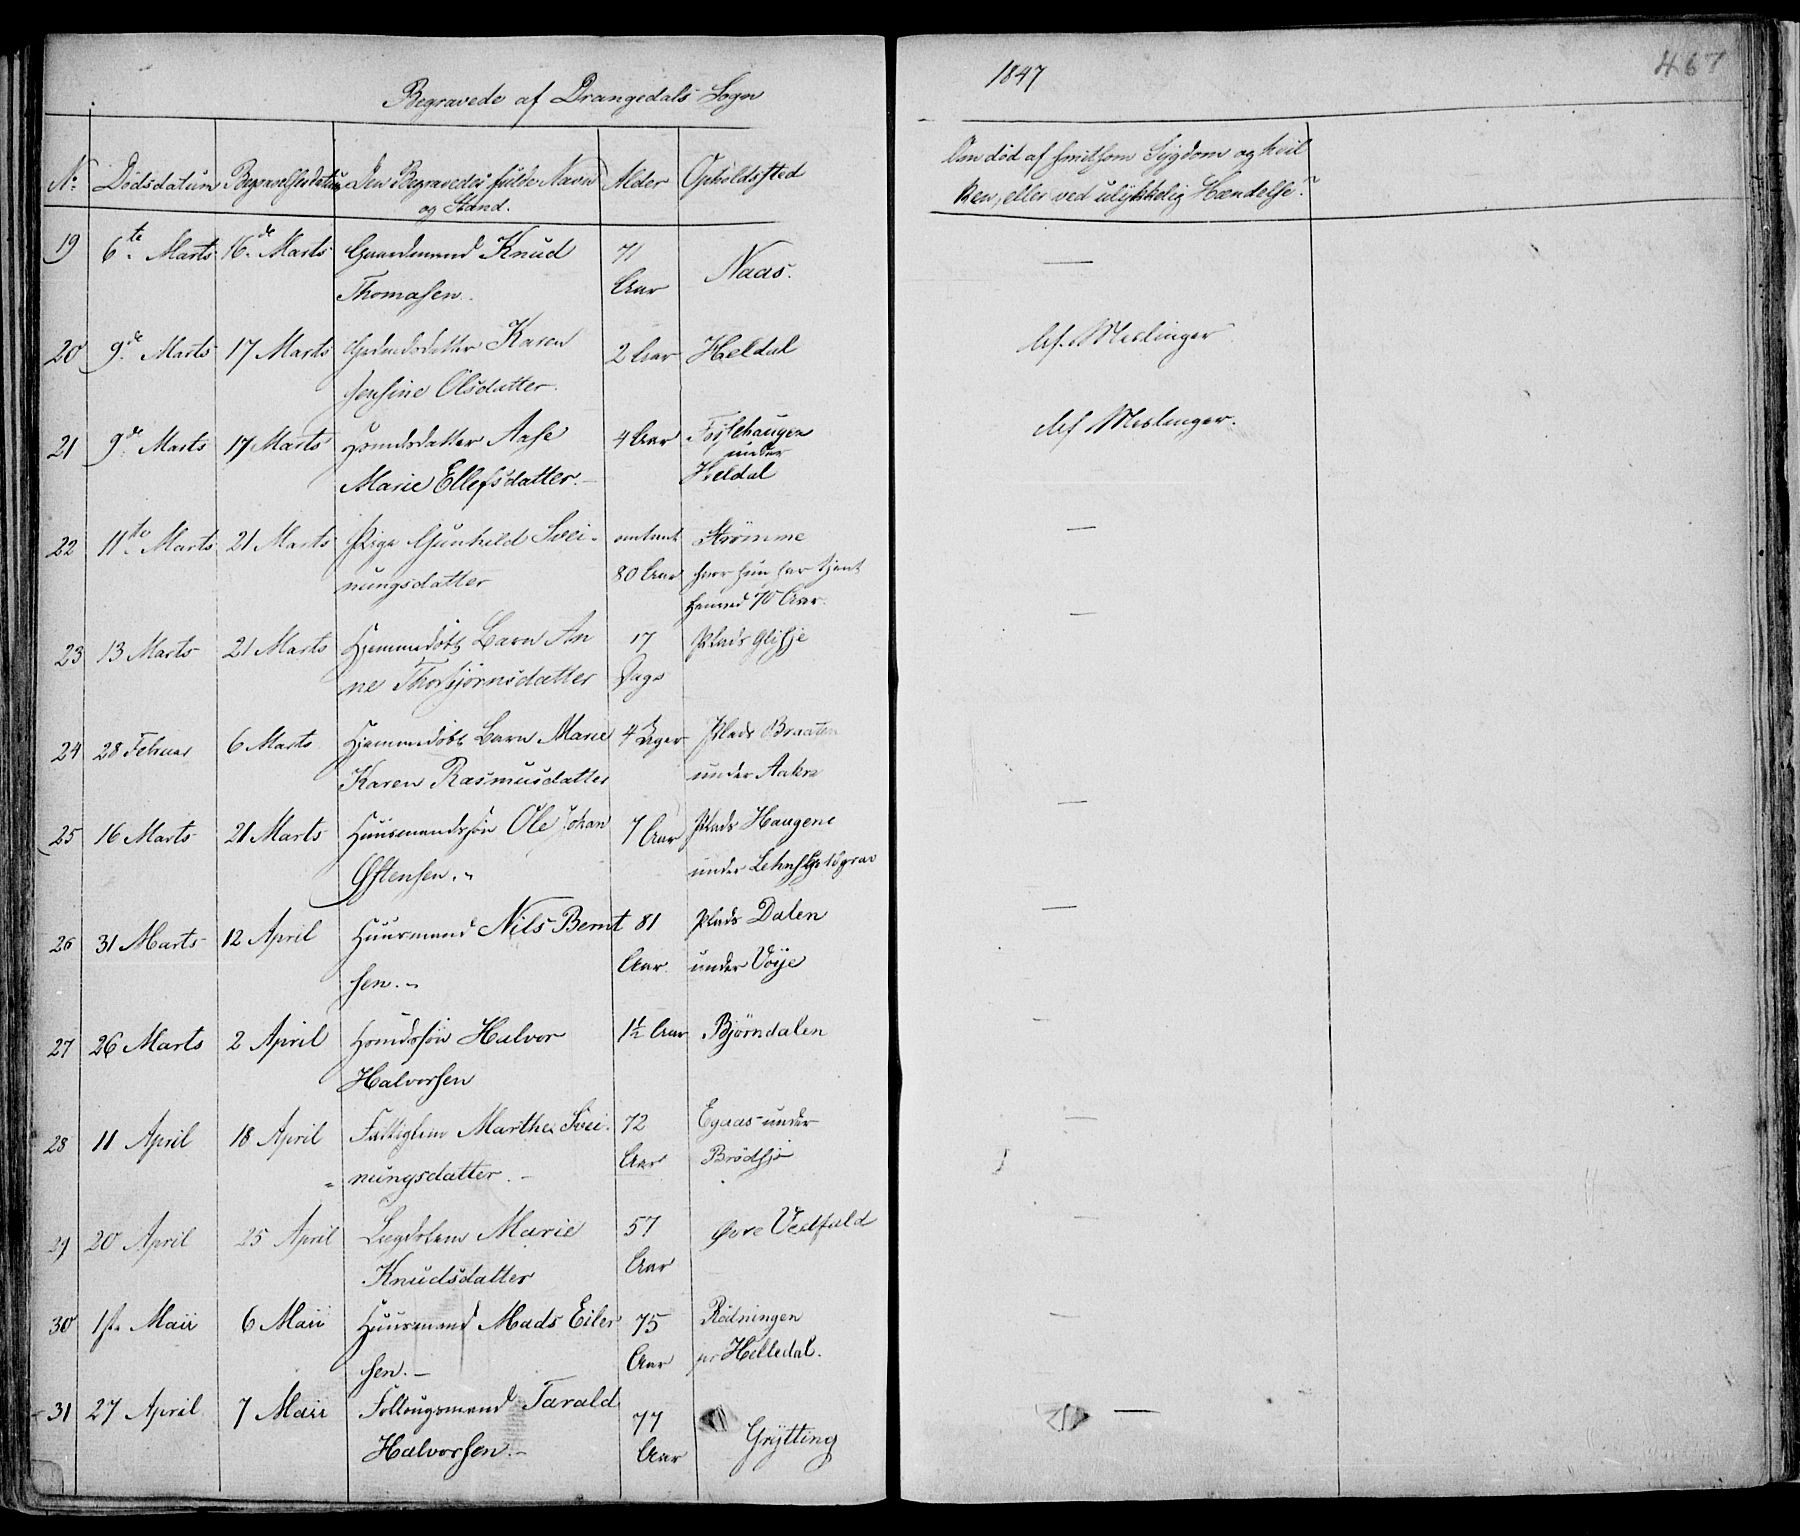 Begravede af Drangedals Sogn
1847
467
No. Dødsdatum Begravelsesdatum Den Begravedes fulde Navn og Stand. Alder Opholdssted
Om død af smitsom Sygdom og hvil
ken, eller ved ulykkelig Hændelse?
19 6te Marts 16de Marts Gaardmand Knud 71
Thomasen. Aar Naas. —
20 9de Marts 17 Marts Karen 2 Aar Heldal Af Meslinger
Jensine Olsdatter.
21 9de Marts 17 Marts Aase 4 Aar under Af Meslinger.
Marie Ellefsdatter. — Heldal
22 11te Marts 21 Marts Pige Gunhild Svei- omtrent Strømme —
nungsdatter 80 Aar hvor hun har tjent
henved 70 Aar.
23 13 Marts 21 Marts Hjemmedøbt Barn An 17 Plads —
ne Thorbjørnsdatter Dage
24 28 Februar 6 Marts Hjemmedøbt Barn Marie 4 Uger Plads Braaten
Karen Rasmusdatter under Aakre
25 16 Marts 21 Marts Huusmandssøn Ole Johan 7 Aar Plads Haugene —
Østensen. under
26 31 Marts 12 April Huusmand Nils Bernt 81 Plads Dalen —
sen. Aar. under Vöje
27 26 Marts 2 April Halvor 1½ Aar Bjørndalen —
Halvorsen
28 11 April 18 April Fattiglem Marthe Svei- 72 Egaas under —
nungsdatter. — Aar Brødsjø
29 20 April 25 April Lægdslem Marie 57 Øvre Vedfald —
Knudsdatter Aar
30 1ste Maii 6 Maii Huusmand Mads Eiler 75 Rødningen —
sen. — Aar pr Helledal.
31 27 April 7 Maii Folkougsmand Tarald 77 Grytting —
Halvorsen. — Aar